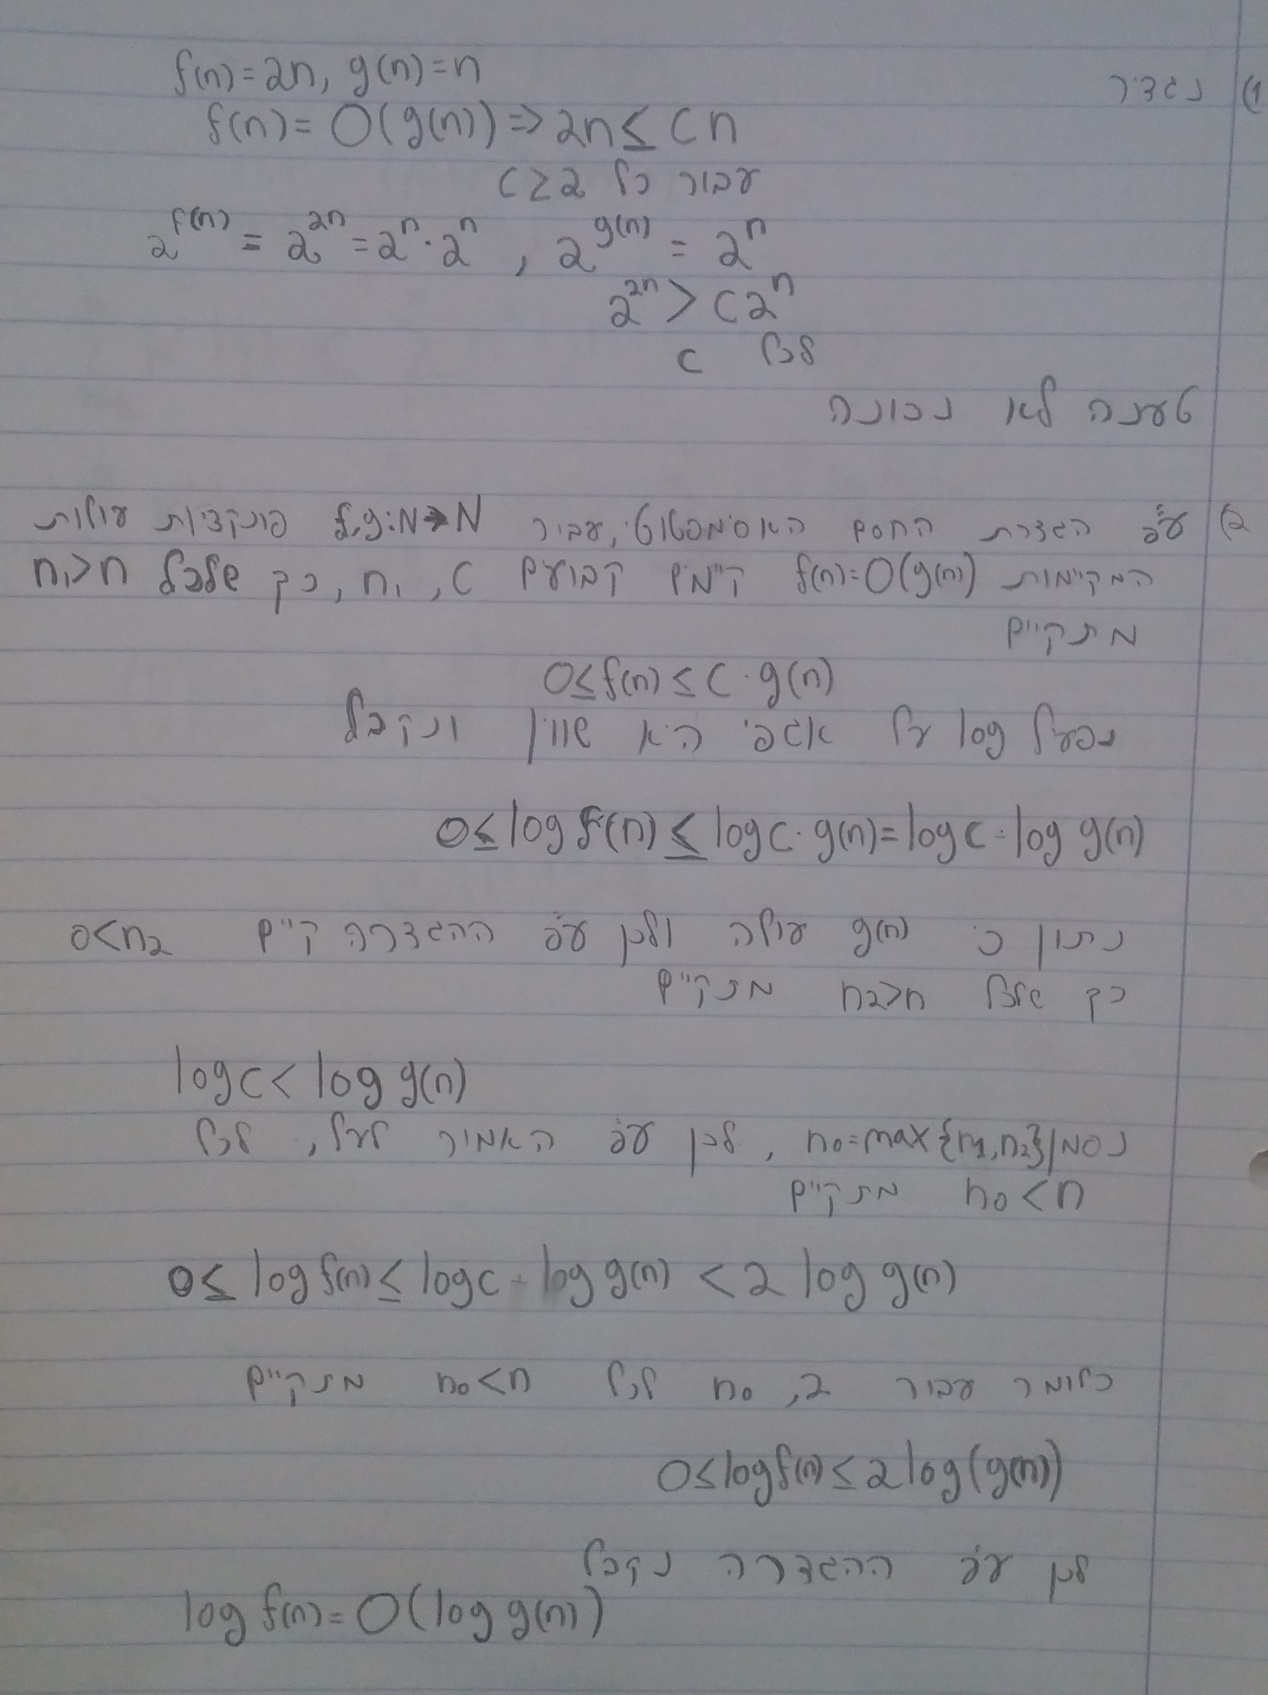 1) נגדיר f(n)=2n, g(n)=n
f(n)=O(g(n))⇒2n≤cn
עבור כל c≥2
2^{f(n)} = 2^{2n} = 2^n·2^n , 2^{g(n)} = 2^n
2^{2n} > c2^n
לכל c
טענה לא נכונה
2) ע"פ הגדרת החסם האסימפטוטי, עבור f,g:N→N פונקציות עולות
המקיימות f(n)=O(g(n)) קיימים קבועים c, n₁, כך שלכל n₁>n
מתקיים
0≤f(n)≤c·g(n)
נפעיל log על אגפי הא שוויון ונקבל
0≤log f(n)≤logc·g(n)=logc·log g(n)
נתון כי g(n) עולה ולכן ע"פ ההגדרה קיים 0<n₂
כך שלכל n₂>n מתקיים
logc<log g(n)
נסמן n₀=max{n₁,n₂}, לכן ע"פ האמור לעיל, לכל
n₀<n מתקיים
0≤ log f(n)≤ logc · log g(n) < 2 log g(n)
כלומר עבור 2, n₀ לכל n₀<n מתקיים
0≤logf(n)≤2log(g(n))
לכן ע"פ ההגדרה נקבל
log f(n)=O(log g(n))